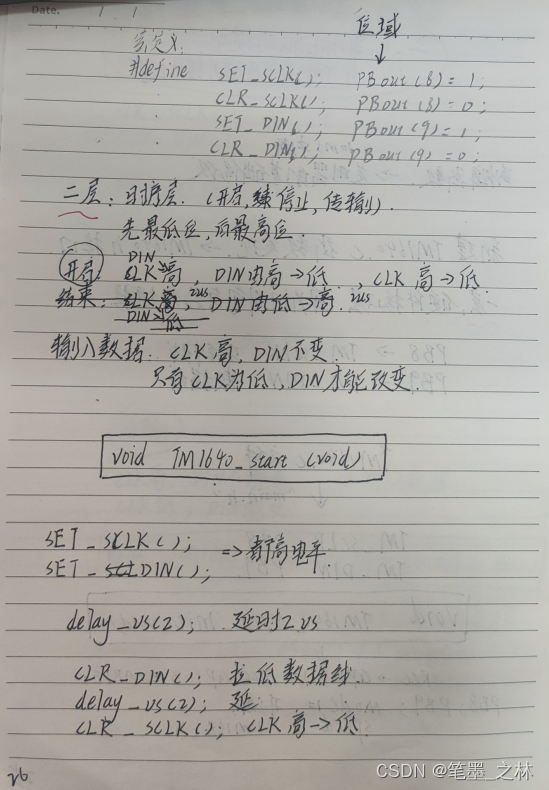 Date. / /
位域
宏定义:
#define SET_SCLK(); PBout(8)=1;
CLR_SCLK(); PBout(8)=0;
SET_DIN(); PBout(9)=1;
CLR_DIN(); PBout(9)=0;
二层: 时序层. (开启, 停止, 传输).
先最低位, 后最高位.
DIN
开启: CLK高, DIN由高→低., CLK 高→低.
结束: CLK高, 2us DIN由低→高. 2us
DIN→低
输入数据. CLK高, DIN不变.
只有CLK为低, DIN才能改变.
void TM1640_start (void)
SET_SCLK(); =>都高电平.
SET_DIN();
delay_us(2); 延时2us
CLR_DIN(); 拉低数据线.
delay_us(2); 延
CLR_SCLK(); CLK高→低
26
CSDN @笔墨_之林